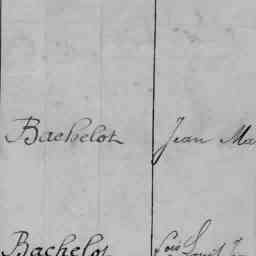 Bachelot Jean Ma
Bachelot